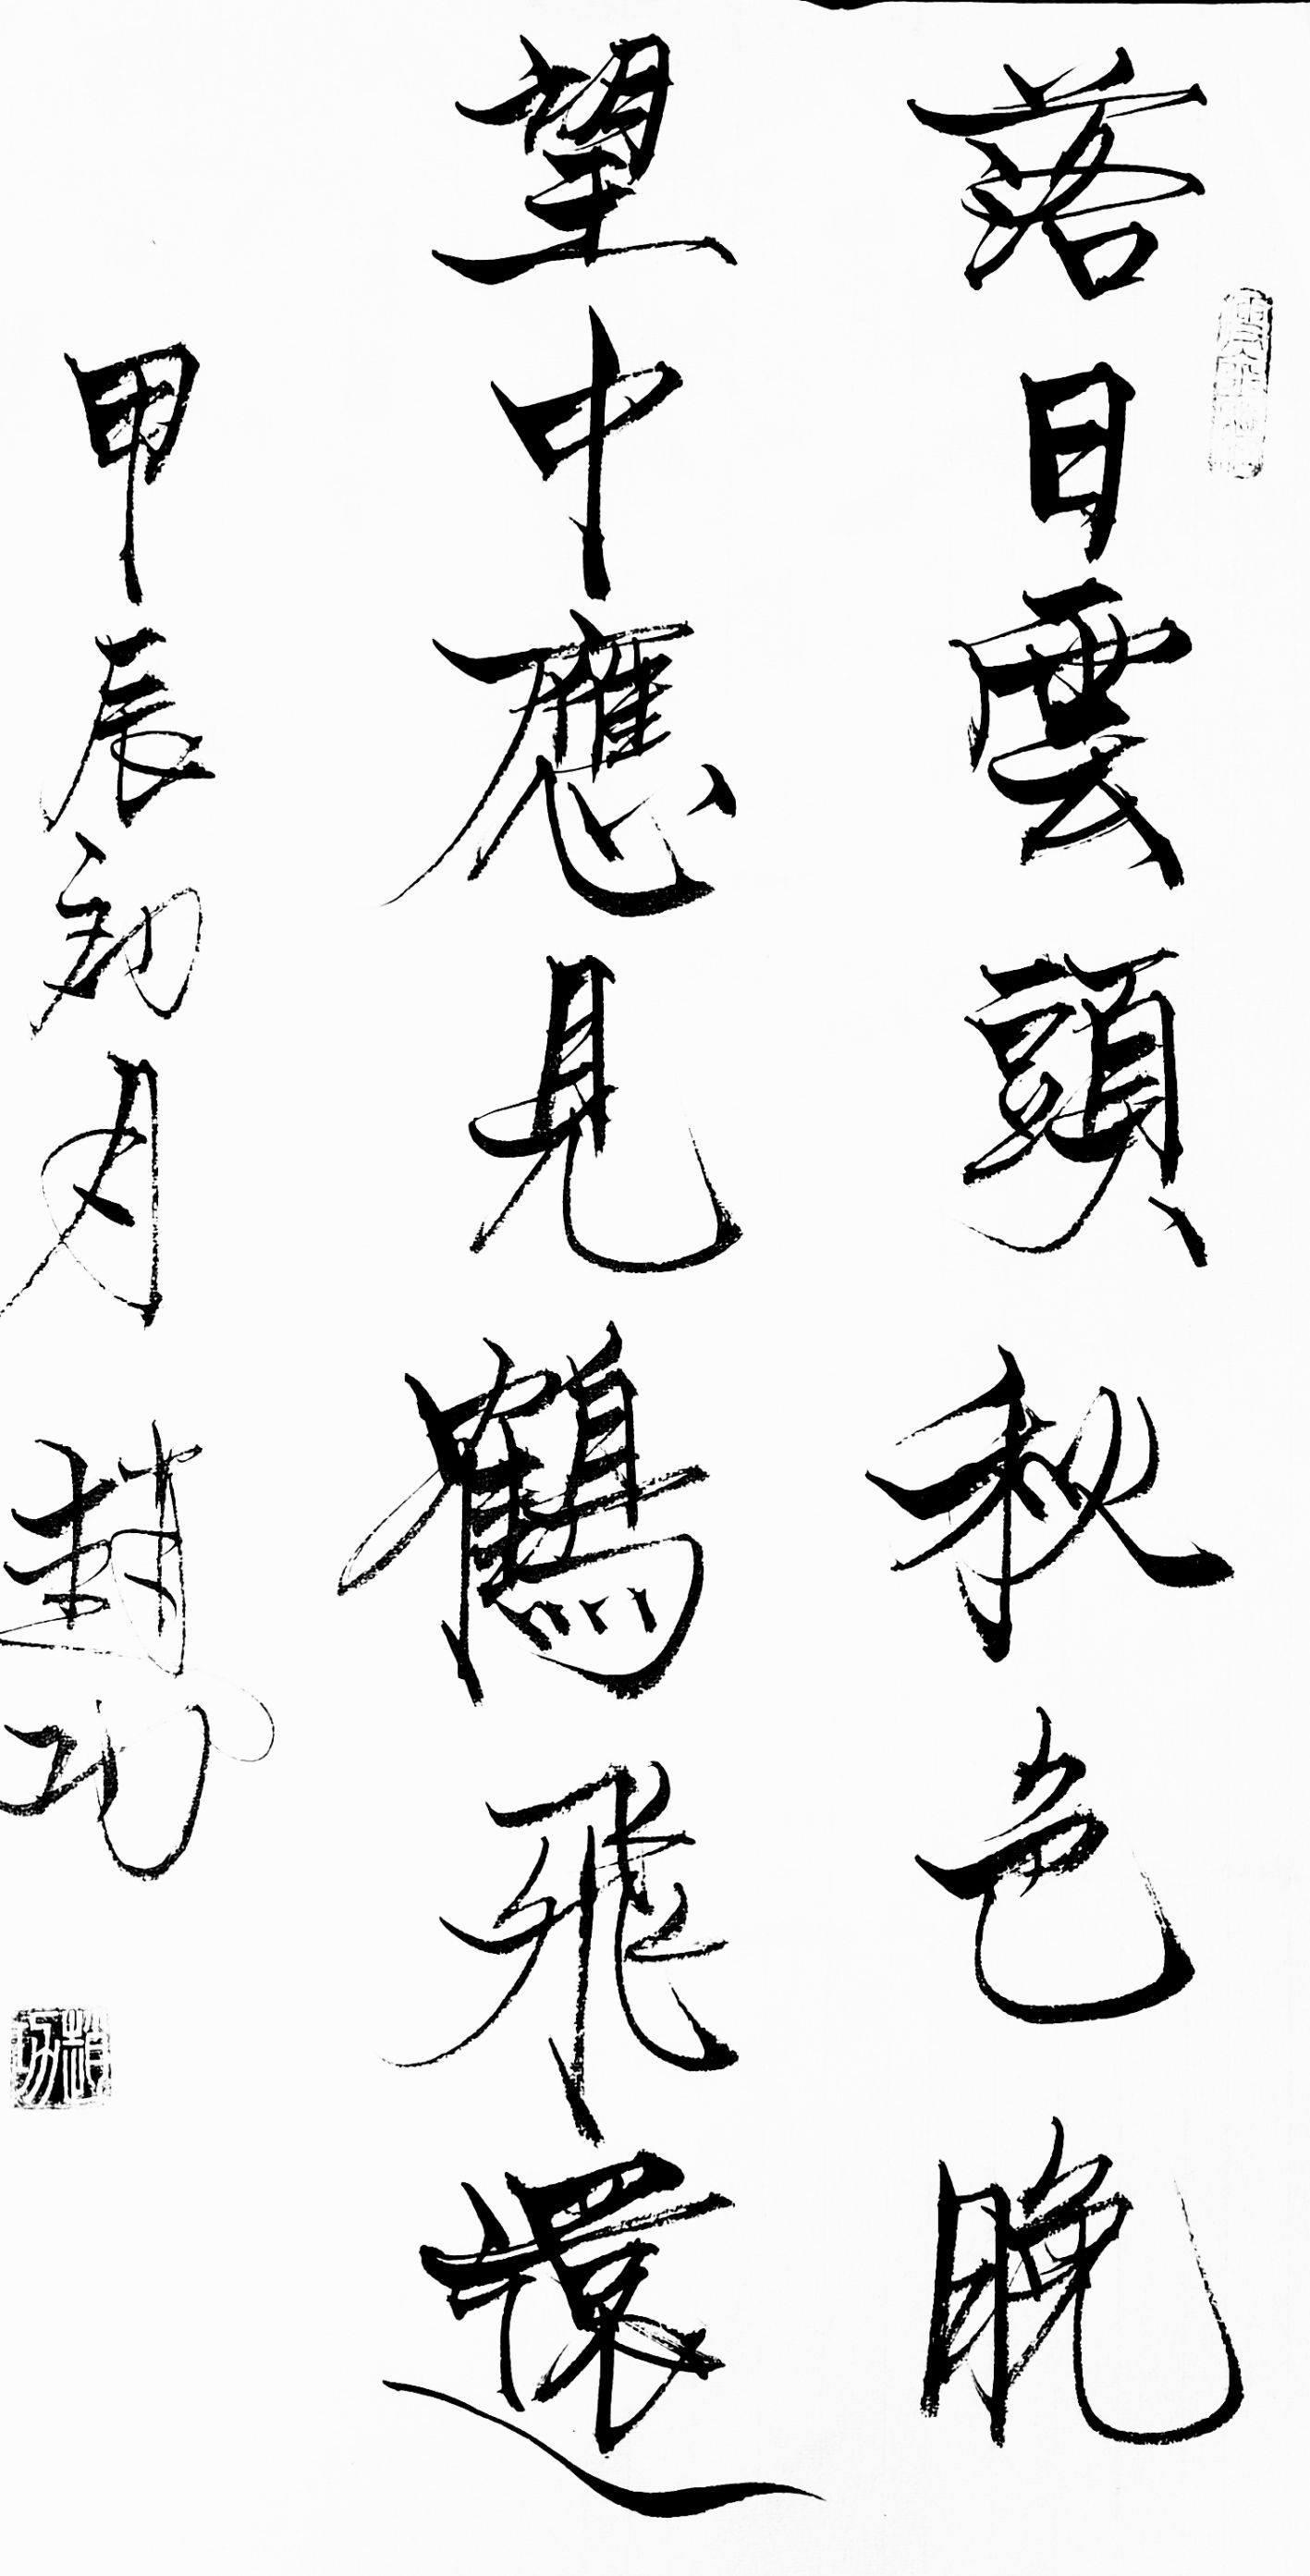 落日雲頭秋色晚
望中應見鶴飛還
甲辰初月 趙功
趙功